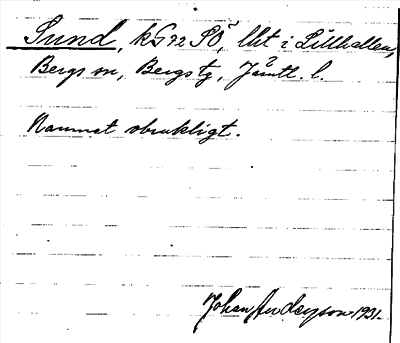 Sund, kG72 SÖ, lht i Lillhallen,
Bergs sn, Bergs tg, Jämtl. l.
Namnet obrukligt.
Johan Anderson 1931.